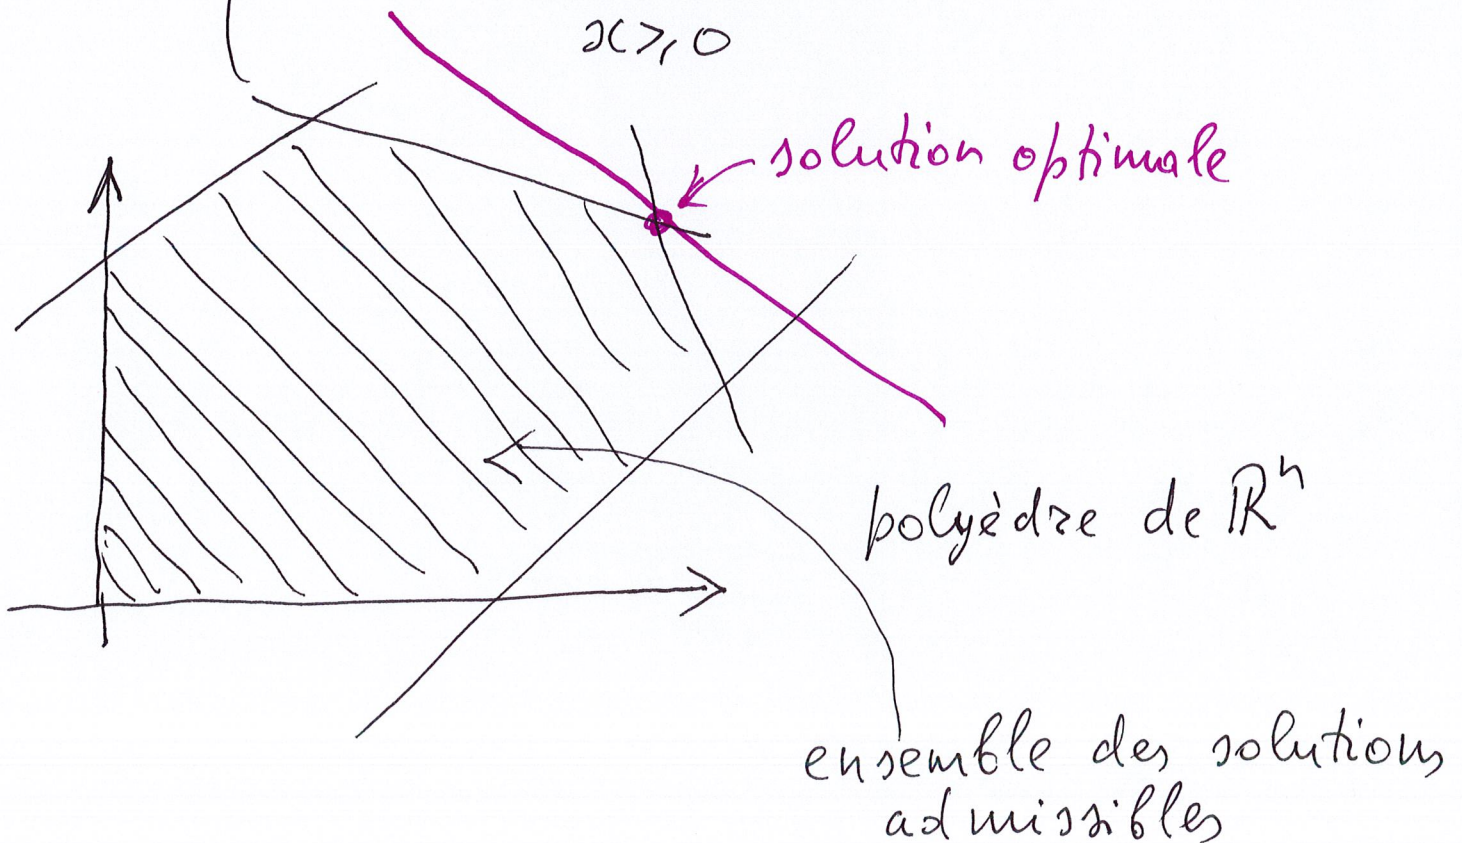 x ≥ 0
solution optimale
polyèdre de ℝⁿ
ensemble des solutions
admissibles